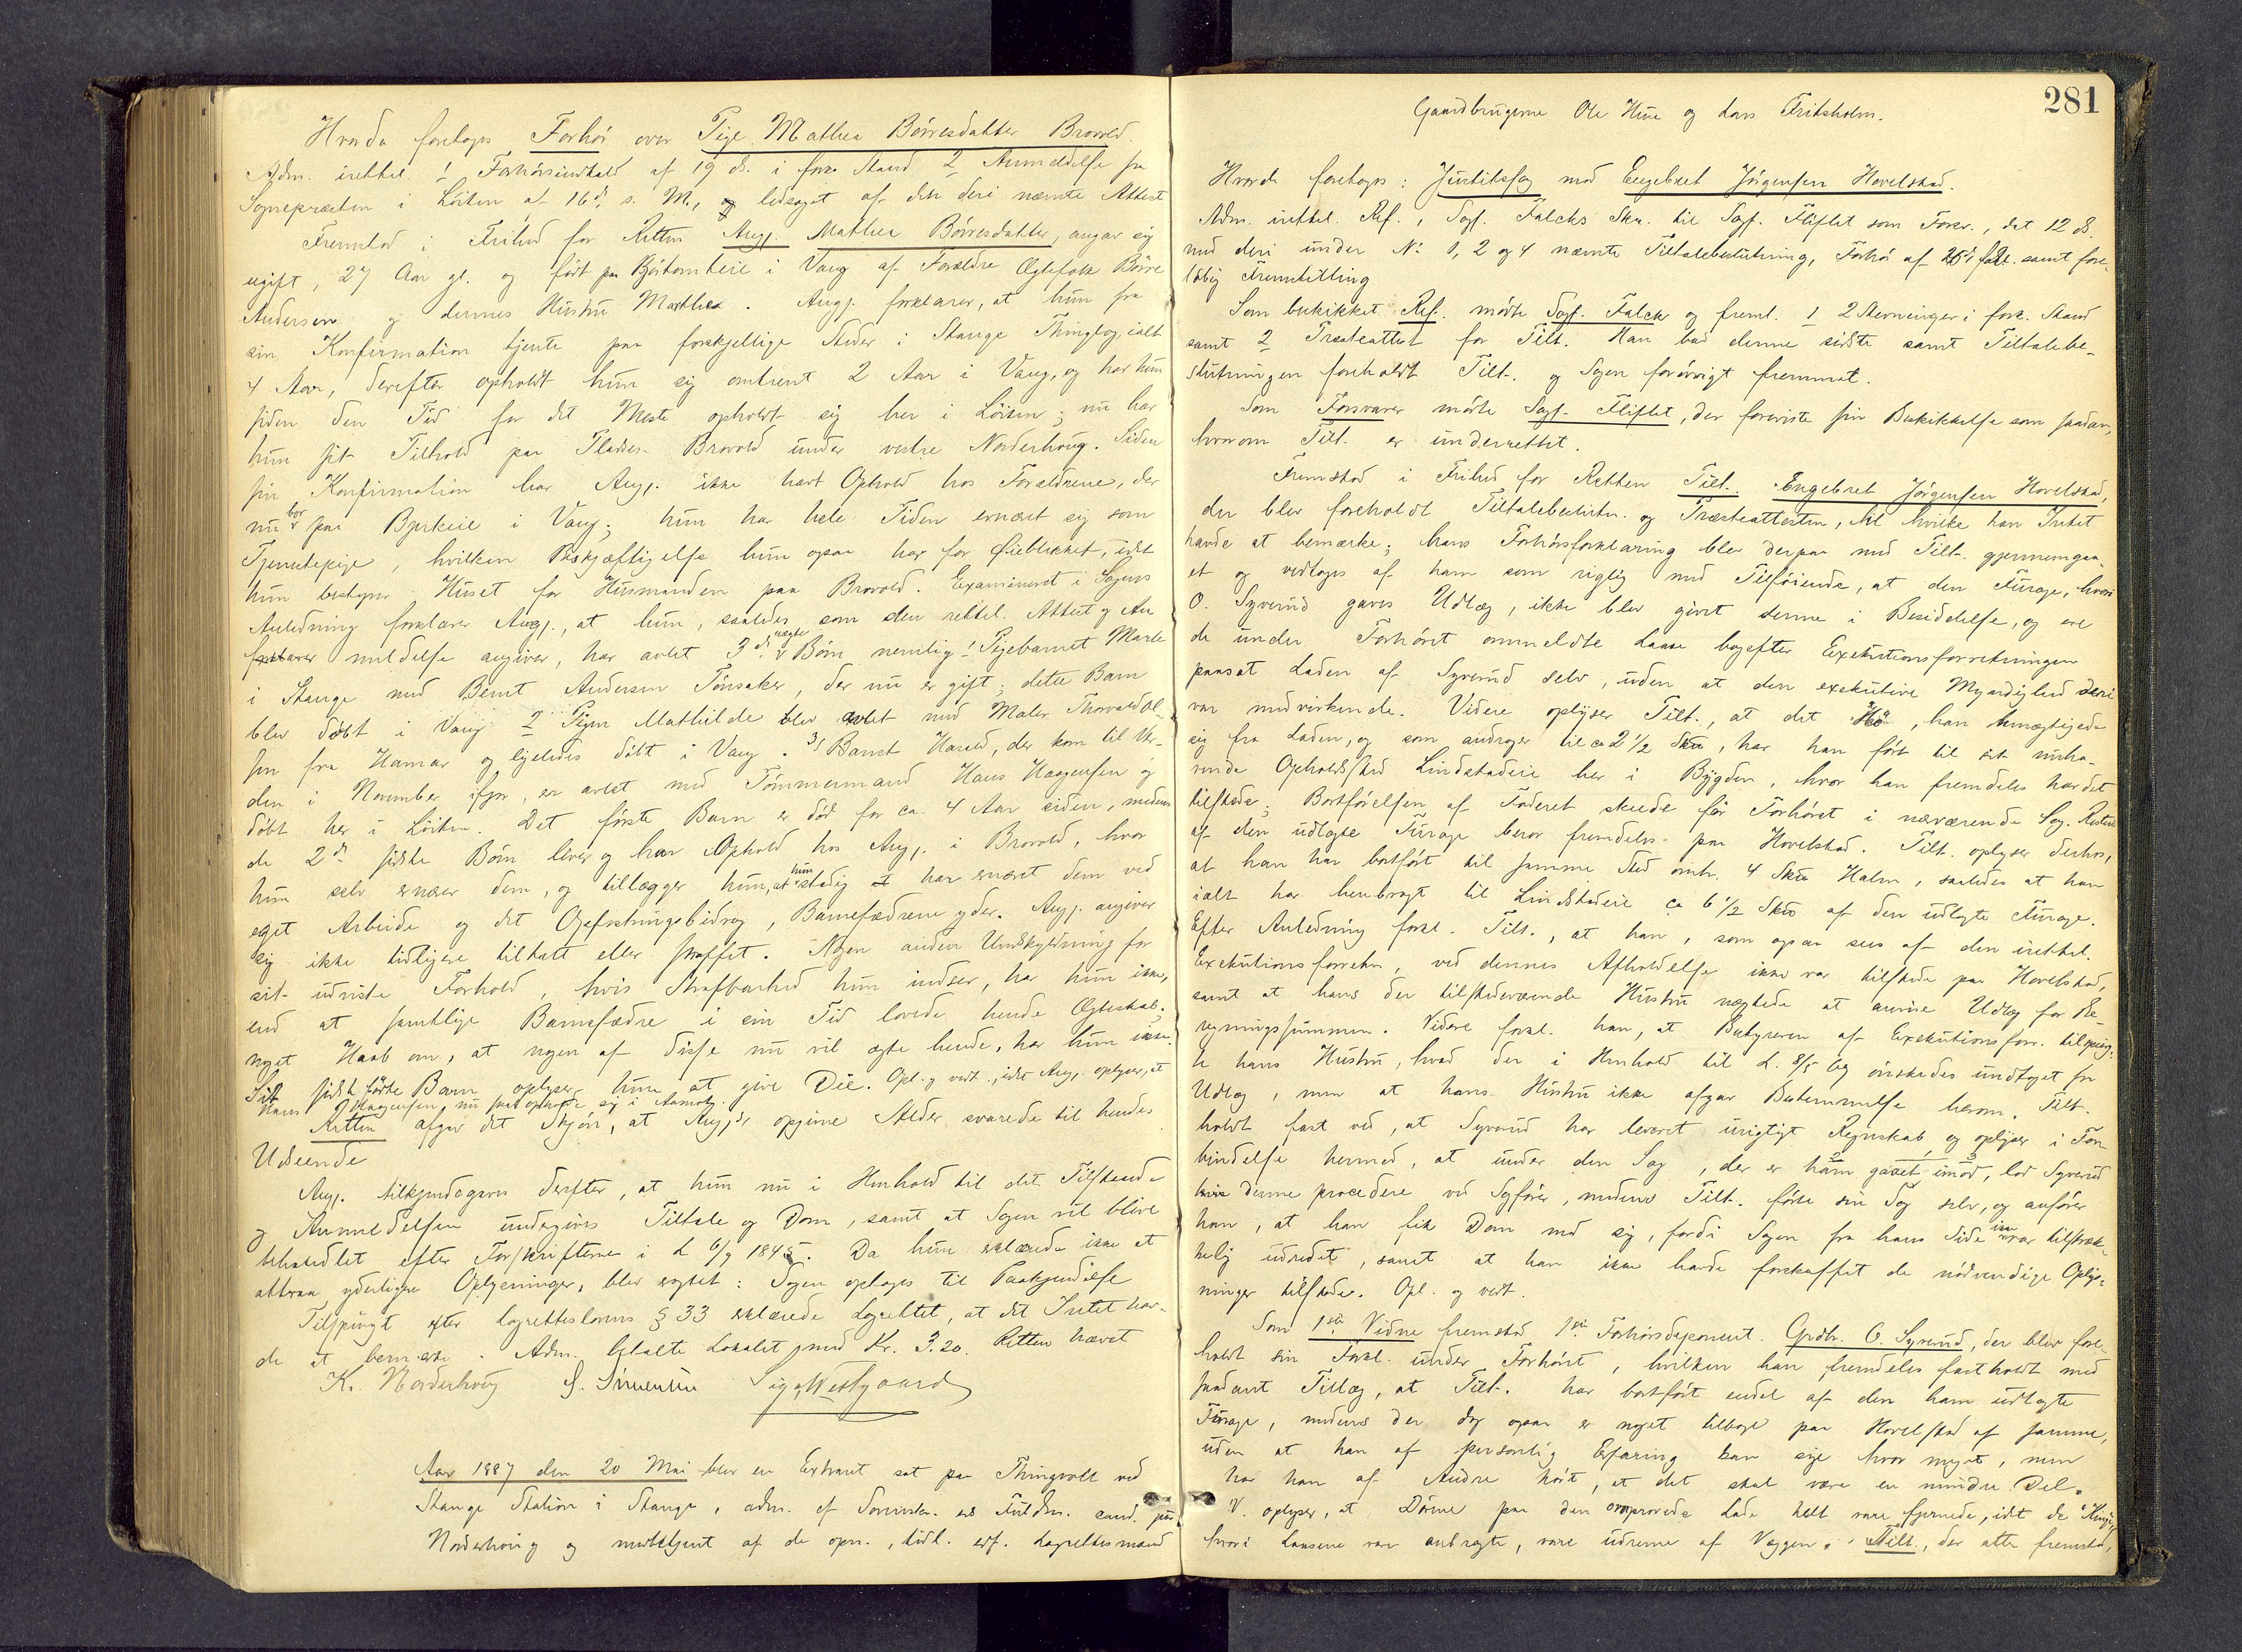 Hvorda foretoges Forhør over Pige Mathea Børresdatter Brovold.
Adm. irettel. 1 Forhørsindkald af 19 ds. i fork. Stand 2 Anmeldelse fra
Sognepræsten i Løiten af 16 d. s. M., og ledsaget af den deri nævnte Attest
Fremstod i Frihed for Retten Angj. Mathea Børresdatter, angav sig
ugift, 27 Aar gl. og født paa i Vang af Forældre Ægtefolk Børre
Andersen og dennes Hustru Marthea. Angj. forklarer, at hun fra
sin Konfirmation tjente paa forskjellige Steder i Stange Thinglag, ialt
4 Aar, derefter opholdt hun sig omtrent 2 Aar i Vang, og har hun
siden den Tid for det Meste opholdt sig her i Løiten; nu har
hun sit Tilhold paa Pladsen Brovold under vestre Norderhoug. Siden
sin Konfirmation har Angj. ikke havt Ophold hos Forældrene, der
nu bor paa Bjerkeie i Vang; hun har hele Tiden ernæret sig som
Tjenestepige, hvilken Beskjæftigelse hun ogsaa har for Øieblikket, idet
hun bestyrer Huset for Husmanden paa Brovold. Examineret i Sagens
Anledning forklarer Angj., at hun, saaledes som den rettel. Attest og An
forklarer meldelse angiver, har avlet 3 de uægte Børn nemlig 1 Pigebarnet Marte
i Stange med Bernt Andersen Tønsaker, der nu er gift; dette Barn
blev døbt i Vang 2 Pigen Mathilde blev avlet med Maler Thorvald Ol-
sen fra Hamar og ligeledes døbt i Vang. 3/ Barnet Harald, der kom til Ver-
den i November ifjor, er avlet med Tømmermand Hans Haagensen og
døbt her i Løiten. Det første Barn er død for ca. 4 Aar siden, medens
de 2 de sidste Børn lever og har Ophold hos Angj. i Brovold, hvor
hun selv ernærer dem, og tillægger hun, at hun stadig har ernæret dem ved
eget Arbeide og det Opfostringsbidrag, Barnefædrene yder. Angj. angiver
sig ikke tidligere tiltalt eller straffet. Nogen anden Undskyldning for
sit udviste Forhold, hvis Strafbarhed hun indser, har hun ikke,
end at samtlige Barnefædre i sin Tid lovede hende Ægteskab.
Noget Haab om, at nogen af disse nu vil ægte hende, har hun ikke.
Sit sidst fødte Barn oplyser hun at give Die. Opl. og vedt., idet Angj. oplyser, at
Hans Haagensen nu skal opholde sig i Aamot.
Retten afgav det Skjøn, at Angj's opgivne Alder svarede til hendes
Udseende
Angj. tilkjendegaves derefter, at hun nu i Henhold til det Tilstaaede
og Anmeldelsen undergives Tiltale og Dom, samt at Sagen vil blive
behandlet efter Forskrifterne i L 6/9 1845. Da hun erklærede ikke at
attraa yderligere Oplysninger, blev eragtet: Sagen optages til Paakjendelse
Tilspurgt efter Lagrettslovens § 33 erklærede Lagrettet, at det Intet hav-
de at bemærke. Adm. betalte Lokalet med Kr. 3.20. Retten hævet
K. Norderhoug S. Simensen Sigv Westgaard
Aar 1887 den 20 Mai blev en Extraret sat paa Thingvold ved
Stange Station i Stange, adm. af Sorenskr. ved Fuldm. cand. jur.
Norderhoug og medbetjent af de opn., tidl. edf. Lagrettesmænd
281
Gaardbrugerne Ole Hune og Lars Fritsholm.
Hvorda foretoges: Justitssag mod Engebret Jørgensen Hovelstad.
Adm. irettel. Ref., Sagf. Falcks Skr. til Sagf. Fliflet som Forsv., dat 12 ds.
med deri under No 1, 2 og 4 nævnte Tiltalebeslutning, Forhør af 25 samt fore-
løbig Fremstilling
Som beskikket Ref. mødte Sagf. Falck og freml. 1 2 Stevninger i fork. Stand
samt 2 Præsteattest for Tilt. Han bad denne sidste samt Tiltalebe-
slutningen foreholdt Tilt. og Sagen forøvrigt fremmet.
Som Forsvarer mødte Sagf. Fliflet, der foreviste sin Beskikkelse som saadan,
hvorom Tilt. er underrettet.
Fremstod i Frihed for Retten Tilt. Engebret Jørgensen Hovelstad,
der blev foreholdt Tiltalebeslutn. og Præsteattesten, til hvilke han Intet
havde at bemærke; hans Forhørsforklaring blev derpaa med Tilt. gjennemgaa-
et og vedtoges af ham som rigtig med Tilføiende, at den Furage, hvori
O. Syverud gaves Udlæg, ikke blev givet denne i Besiddelse, og ere
de under Forhøret ommeldte Laase bagefter Exekutionsforretningen
paasat Laden af Syverud selv, uden at den exekutive Myndighed deri
var medvirkende. Videre oplyser Tilt., at det "Hø", han bemægtigede
sig fra Laden, og som androg til ca 2 1/2 Sktt, har han ført til sit nuhæ-
rende Opholdssted Lindstadeie her i Bygden, hvor han fremdeles har det
tilstede; Bortførelsen af Foderet skede før Forhøret i nærværende Sag. Resten
af den udlagte Furage beror fremdeles paa Hovelstad. Tilt. oplyser derhos,
at han har bortført til samme Sted omtr. 4 Sktt Halm, saaledes at han
ialt har henbragt til Lindstadeie ca 6 1/2 Sktt af den udlagte Furage.
Efter Anledning forkl. Tilt., at han, som ogsaa sees af den irettel.
Exekutionsforretn., ved dennes Afholdelse ikke var tilstede paa Hovelstad,
samt at hans der tilstedeværende Hustru nægtede at anvise Udlæg for Re-
gningssummen. Videre forkl. han, at Bestyreren af Exekutionsforr. tilspurg-
te hans Hustru, hvad der i Henhold til L. ønskedes undtaget fra
Udlæg, men at hans Hustru ikke afgav Bestemmelse herom. Tilt.
holdt fast ved, at Syverud har leveret urigtigt Regnskab og oplyser i For-
bindelse hermed, at under den Sag, der er ham gaaet imod, lod Syverud
denne procedere ved Sagfører, medens Tilt. førte sin Sag selv, og anfører
han, at han fik Dom mod sig, fordi Sagen fra hans Side ikke var tilstræk-
kelig udredet, samt at han ikke havde forskaffet de nødvendige Oplys-
ninger tilstede. Opl. og vedt.
Som 1ste Vidne fremstod 1ste Forhørsdeponent. Grdbr. O. Syverud, der blev fore-
holdt sin Forkl. under Forhøret, hvilken han fremdeles fastholdt med
saadant Tillæg, at Tilt. har bortført endel af den ham udlagte
Furage, medens der dog ogsaa er noget tilbage paa Hovelstad af samme,
uden at han af personlig Erfaring kan sige hvor meget, men
har han af Andre hørt, at det skal være en mindre Del.
V. oplyser, at Dørene paa den omprovede Lade helt vare fjernede, idet de "Kinge",
hvori Laasene vare anbragte, vare udrevne af Væggen. Tilt., der atter fremstod,